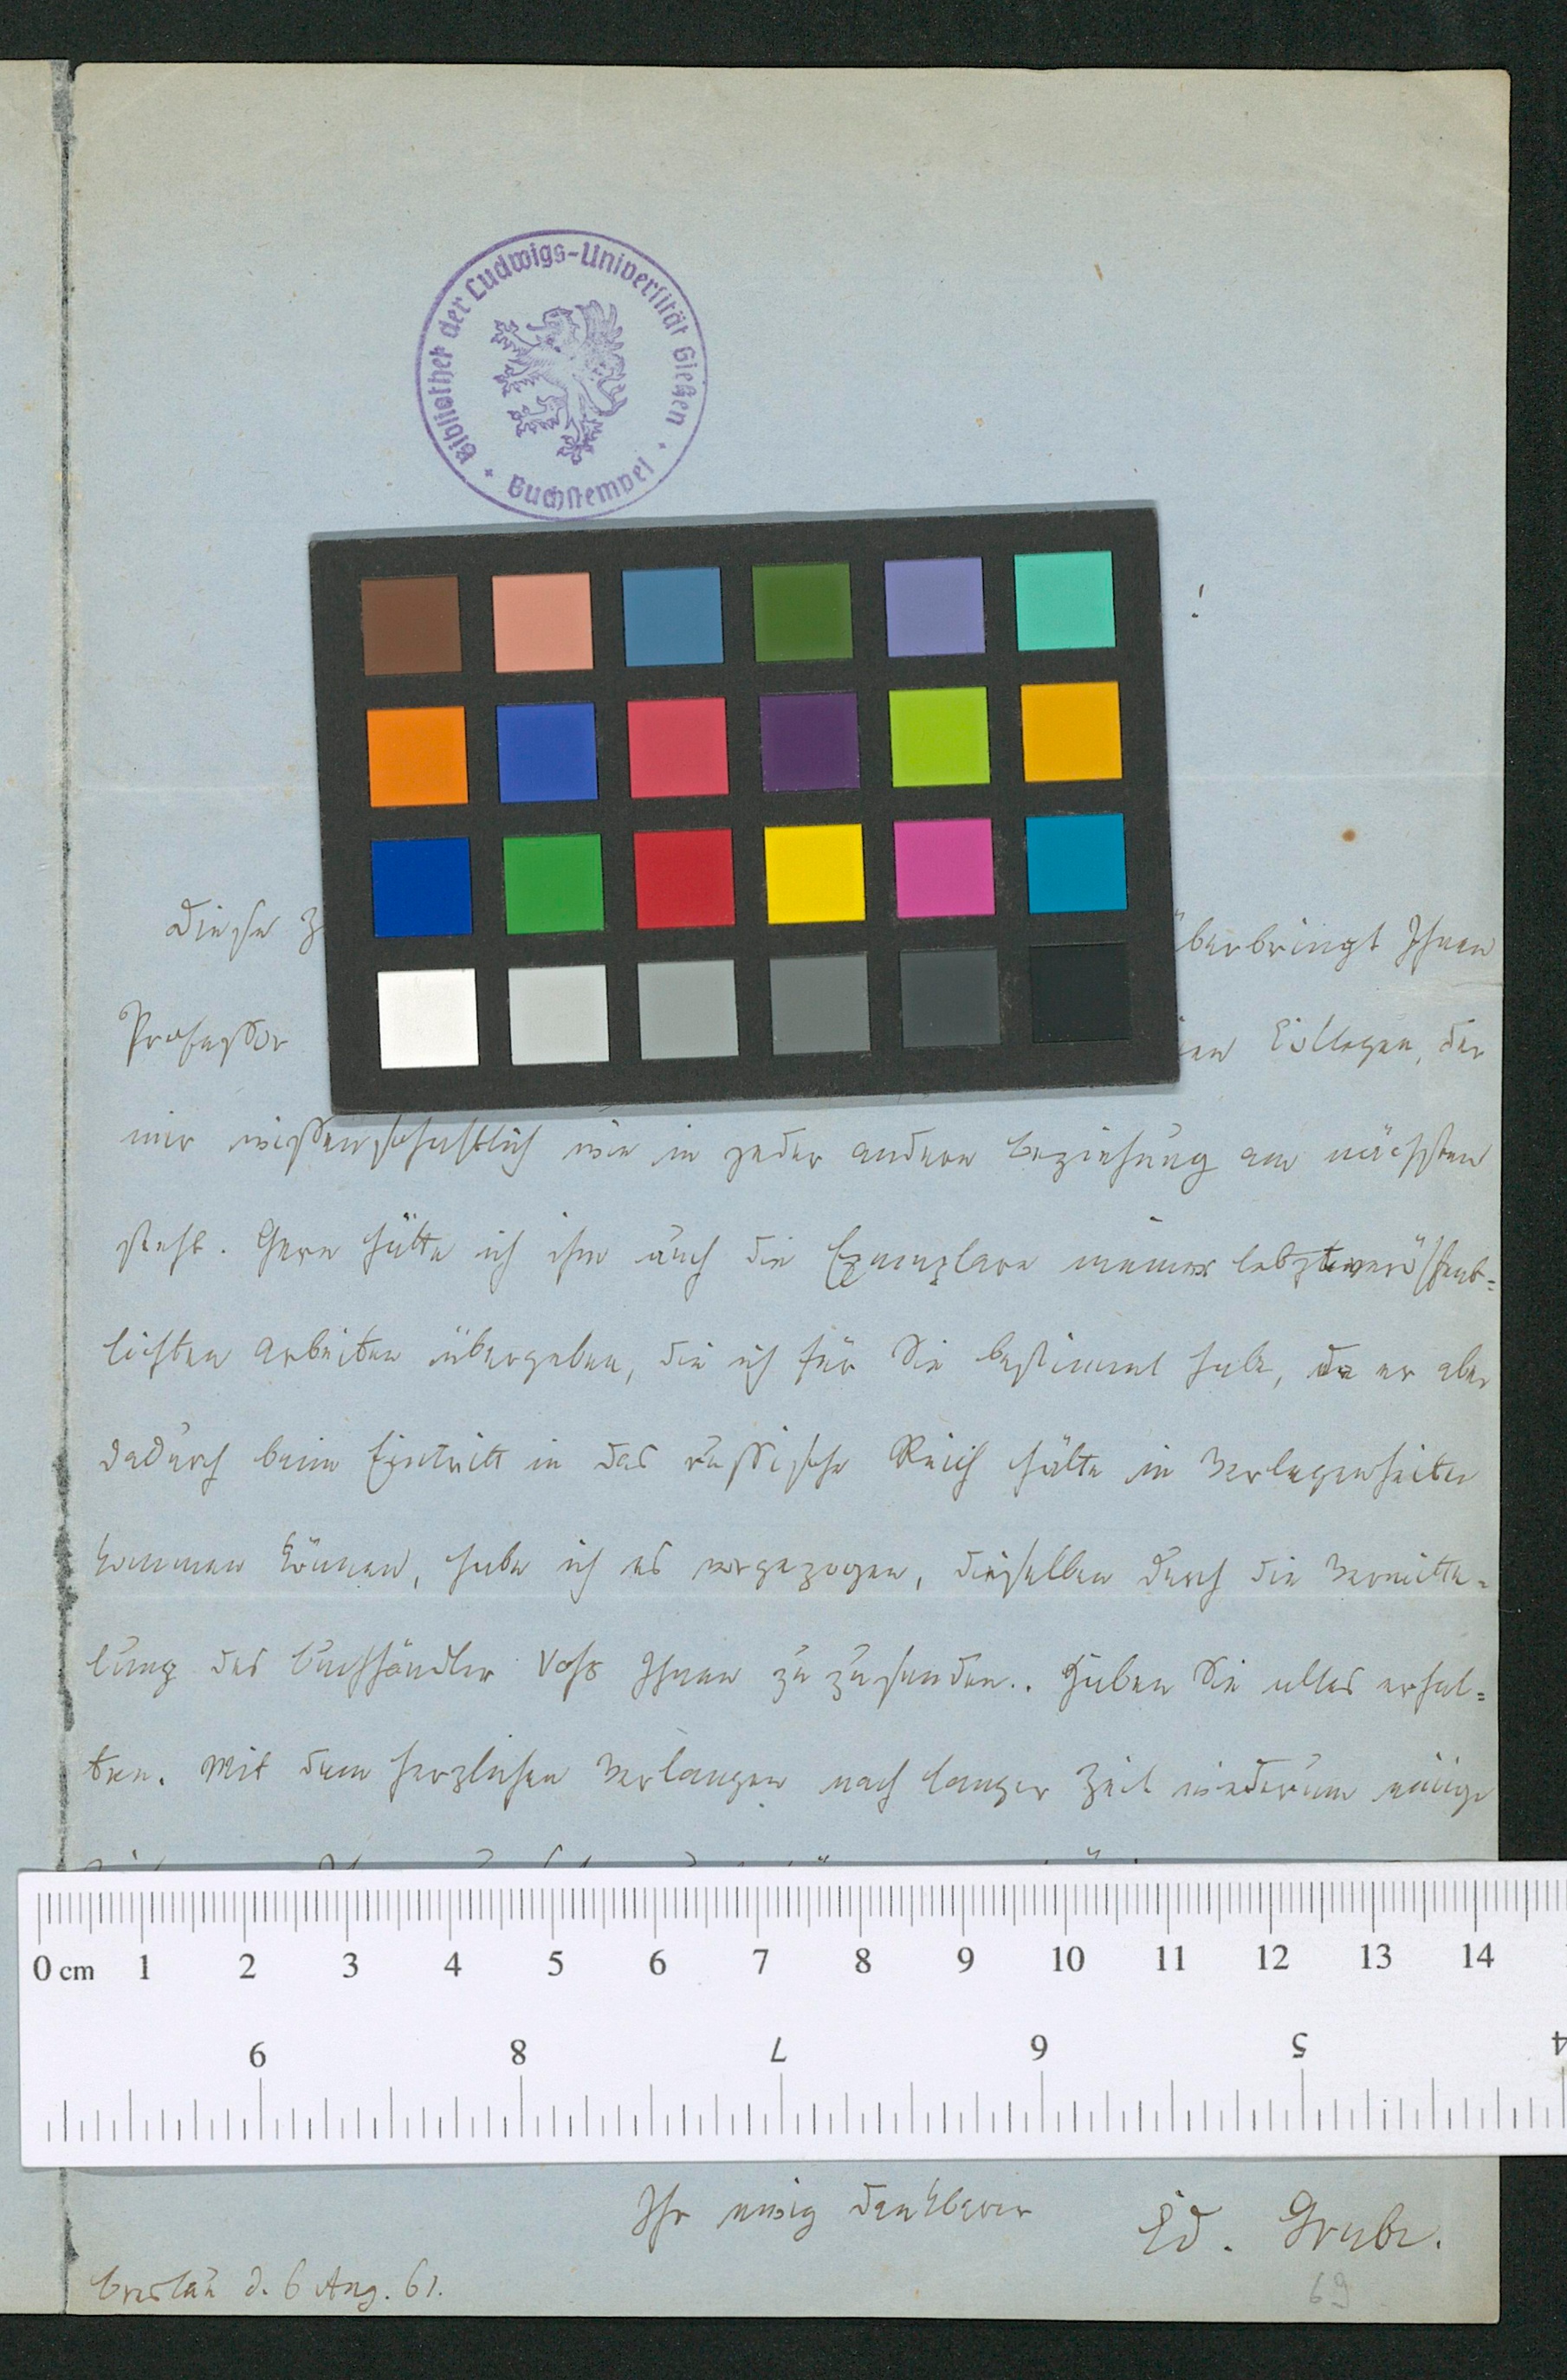 Bibliothek der Ludwigs-Universität Gießen
Buchstempel
!
Diese Z überbringt Ihnen
Professor Collegen, der
mir wissenschaftlich wie in jeder andern Beziehung am nächsten
steht. Gern hätte ich ihm auch die Exemplare meiner letztveröffent=
lichten Arbeiten übergeben, die ich für Sie bestimmt habe, da er aber
dadurch beim Eintritt in das russische Reich hätte in Verlegenheiten
kommen können, habe ich es vorgezogen, dieselben durch die Vermitte=
lung des Buchhändler Voss Ihnen zu zusenden.. Haben Sie alles erhal=
ten. Mit dem herzlichen Verlangen nach langer Zeit wiederum einige
0 cm 1 2 3 4 5 6 7 8 9 10 11 12 13 14
9 8 7 6 5 4
Ihr ewig dankbarer Ed. Grube.
Breslau d. 6 Aug. 61.
69